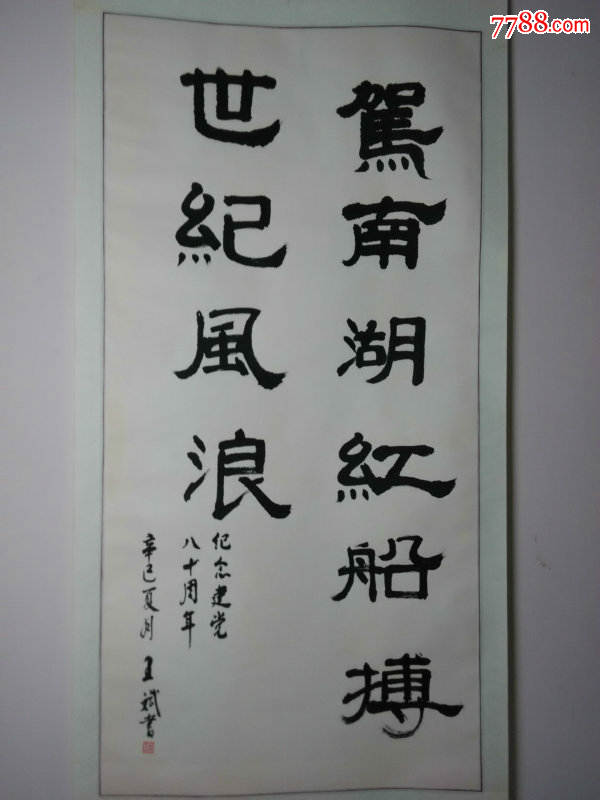 7788.com
駕南湖紅船搏
世紀風浪
纪念建党
八十周年
辛巳夏月 王斌書